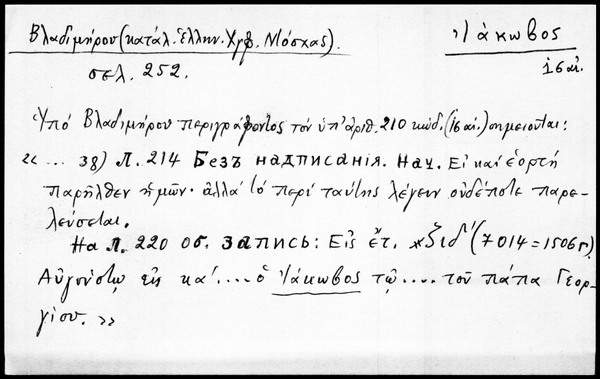 Βλαδιμήρου (κατάλ. Ἑλλην. Χγφ. Μόσχας).
Ἰάκωβος
σελ. 252.
16 αἰ.
Ὑπό Βλαδιμήρου περιγράφοντος τόν ὑπ' ἀριθ. 210 κώδ. (16 αἰ.) σημειοῦται:
"... 38) Л. 214 Безъ надписанія. Нач. Εἰ καί ἑορτή
παρῆλθεν ἡμῶν· ἀλλά τό περί ταύτης λέγειν οὐδέποτε παρε-
λεύσεται.
На Л. 220 об. запись: Εἰς ἔτ. ͵ζιδ' (7014=1506 г.)
Αὐγούστῳ εἰς κα'.... ὁ Ἰάκωβος τῷ.... τοῦ πάπα Γεορ-
γίου. »